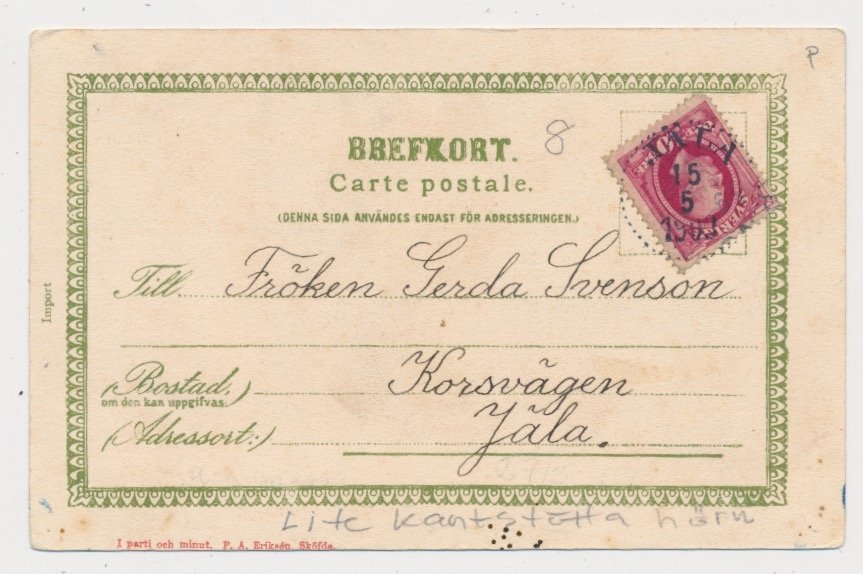 P
8
BREFKORT.
Carte postale.
(DENNA SIDA ANVÄNDES ENDAST FÖR ADRESSERINGEN.)
10
SVERI
15
5
1903
Till Fröken Gerda Svenson
Import
(Bostad,) Korsvägen
om den kan uppgifvas.
(Adressort:) Jäla.
Lite kantstötta hörn
I parti och minut. P. A. Eriksén. Sköfde.